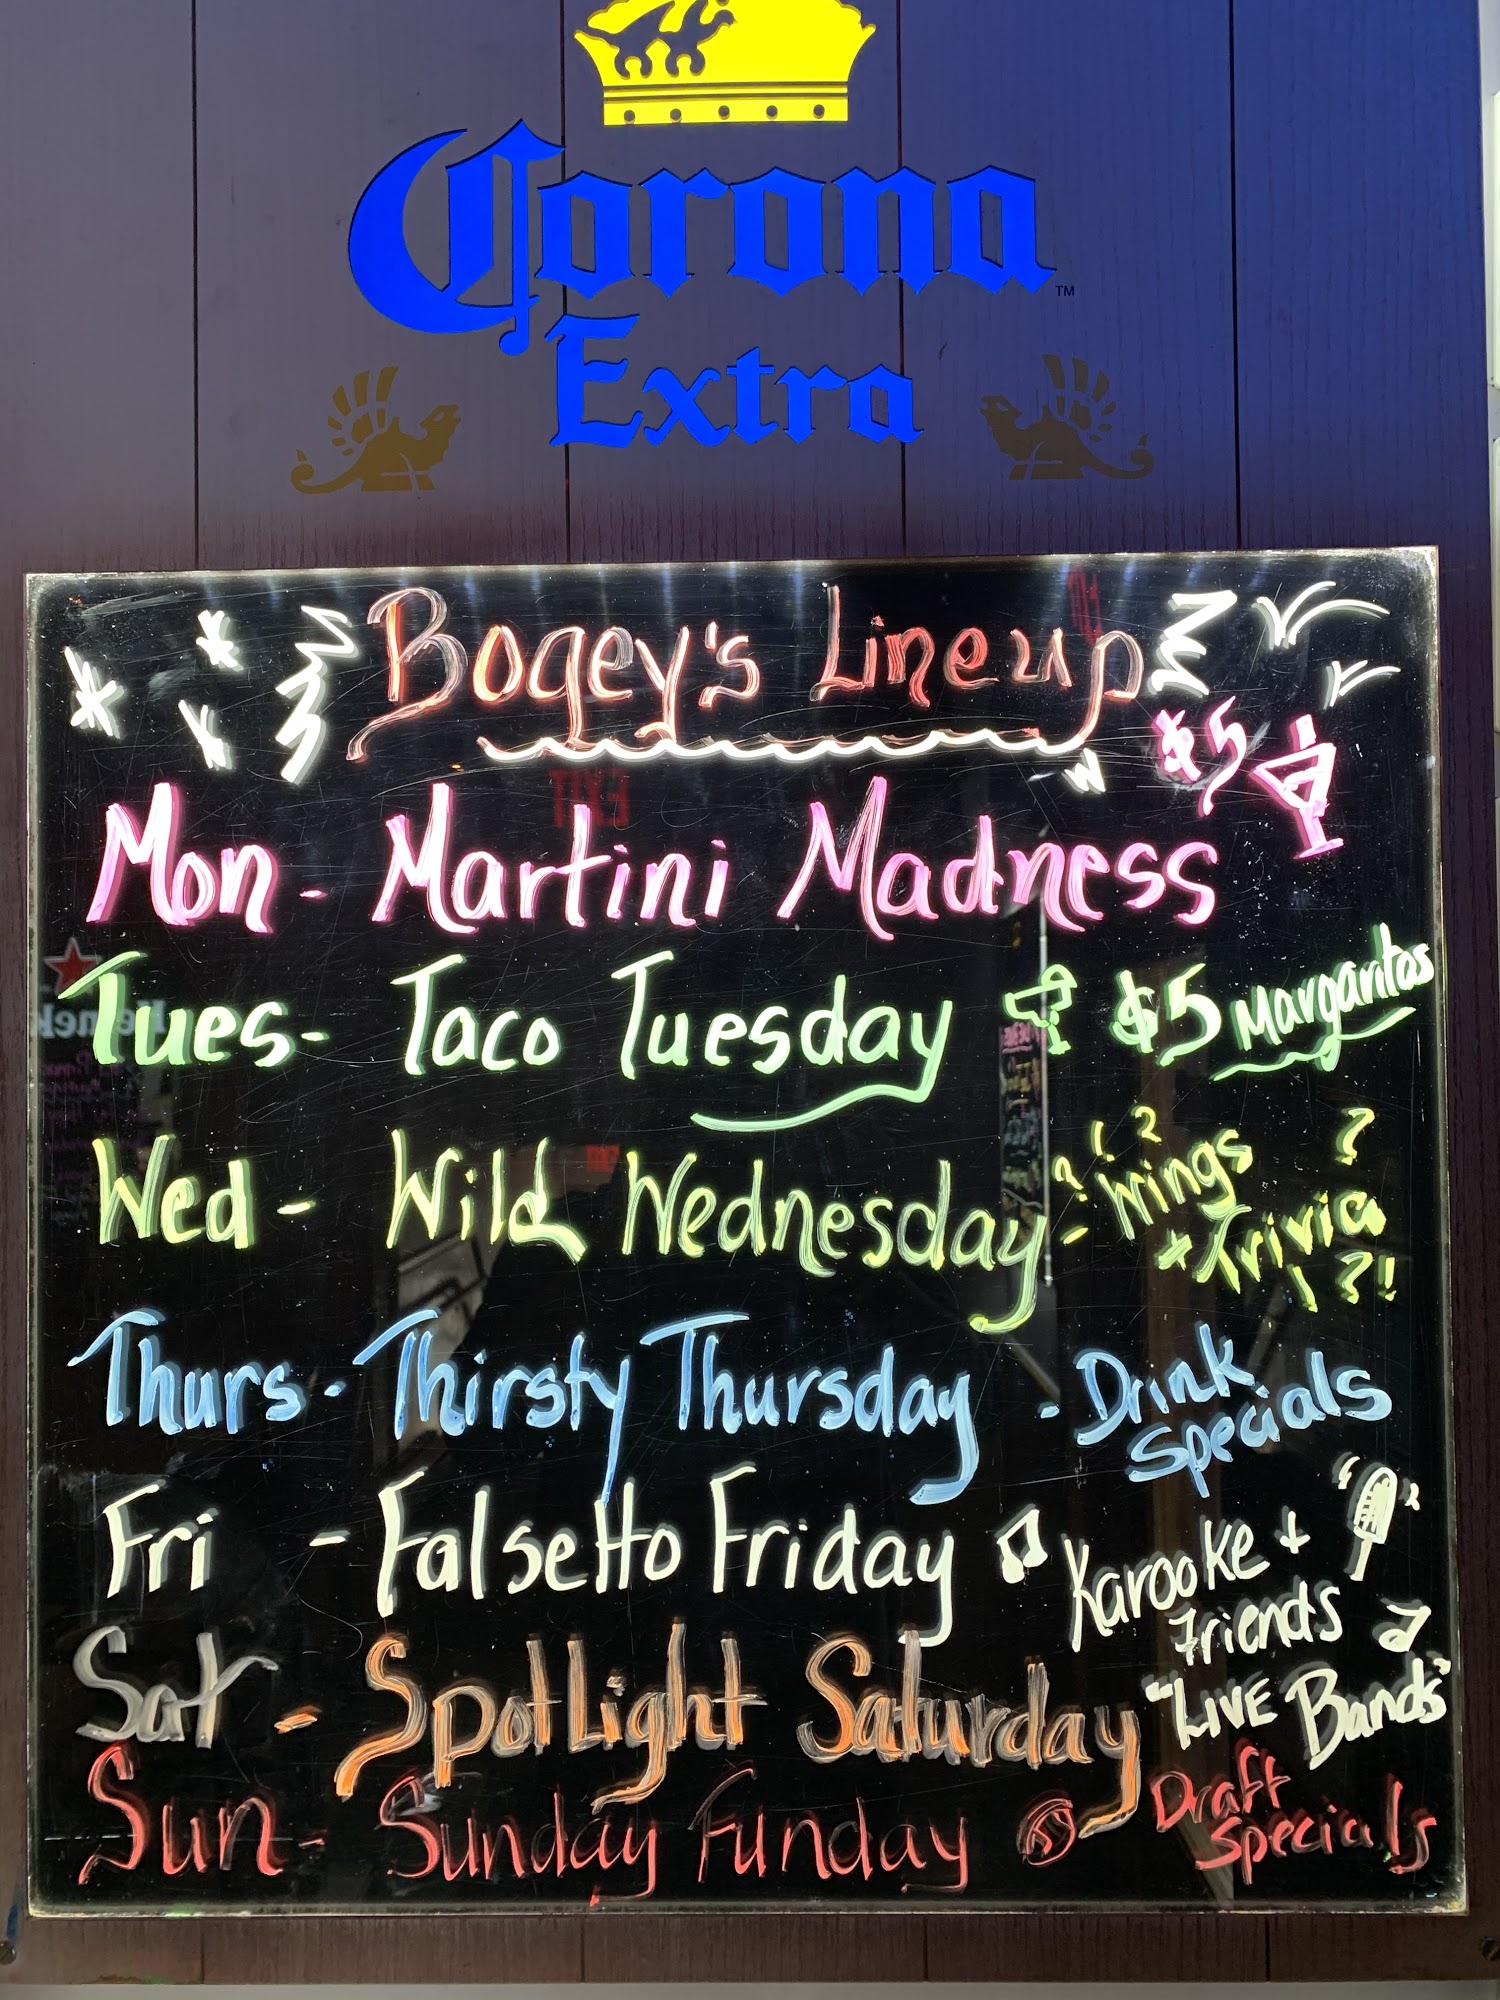 Corona
TM
Extra
Bogey's Lineup
$5
Mon - Martini Madness
Tues - Taco Tuesday $5 Margaritas
Wed - Wild Wednesday - Wings
+ Trivia ?!
Thurs - Thirsty Thursday - Drink
Specials
Fri - Falsetto Friday Karaoke +
Friends
Sat - Spotlight Saturday "LIVE Bands"
Sun - Sunday Funday Draft
Specials